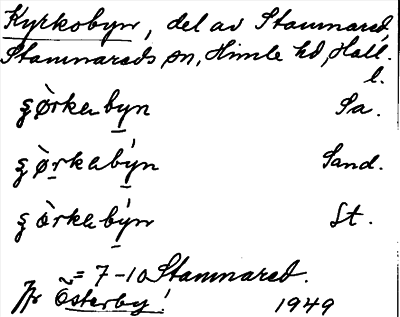 Kyrkobyn, del av Stamnared,
Stamnareds sn, Himle hd, Hall.
l.
ʒòrkabyn Sa.
ʒòrkabýn Sand.
ʒòrkabýn St.
= 7-10 Stamnared.
Jfr Österby! 1949